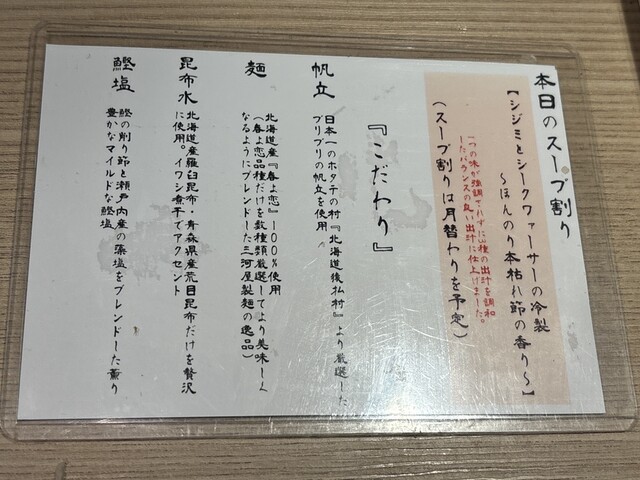 本日のスープ割り
【シジミとシークヮーサーの冷製
～ほんのり本枯れ節の香り～】
一つの味が強調されずに3種の出汁を調和
したバランスの良い出汁に仕上げました。
(スープ割りは月替わりを予定)
『こだわり』
帆立
日本一のホタテの村『北海道猿払村』より厳選した
プリプリの帆立を使用
麺
北海道産『春よ恋』100%使用
(春よ恋品種だけを数種類厳選してより美味しく
なるようにブレンドした三河屋製麺の逸品)
昆布水
北海道産羅臼昆布・青森県産荒目昆布だけを贅沢
に使用。イワシ煮干でアクセント
鰹塩
鰹の削り節と瀬戸内産の藻塩をブレンドした薫り
豊かなマイルドな鰹塩